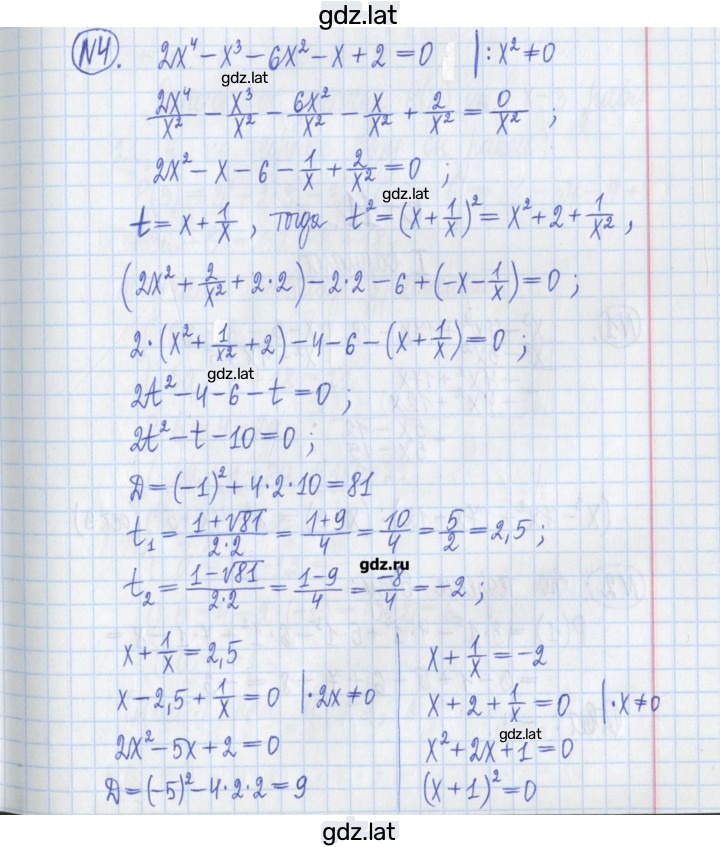 gdz.lat
№4. 2x⁴ − x³ − 6x² − x + 2 = 0 | : x² ≠ 0
gdz.lat
2x⁴/x² − x³/x² − 6x²/x² − x/x² + 2/x² = 0/x² ;
2x² − x − 6 − 1/x + 2/x² = 0 ;
gdz.lat
t = x + 1/x , тогда t² = (x + 1/x)² = x² + 2 + 1/x² ,
(2x² + 2/x² + 2·2) − 2·2 − 6 + (−x − 1/x) = 0 ;
2·(x² + 1/x² + 2) − 4 − 6 − (x + 1/x) = 0 ;
gdz.lat
2t² − 4 − 6 − t = 0 ;
2t² − t − 10 = 0 ;
Д = (−1)² + 4·2·10 = 81
t₁ = (1 + √81)/(2·2) = (1 + 9)/4 = 10/4 = 5/2 = 2,5 ;
gdz.ru
t₂ = (1 − √81)/(2·2) = (1 − 9)/4 = −8/4 = −2 ;
x + 1/x = 2,5
x − 2,5 + 1/x = 0 | · 2x ≠ 0
2x² − 5x + 2 = 0
Д = (−5)² − 4·2·2 = 9
x + 1/x = −2
x + 2 + 1/x = 0 | · x ≠ 0
gdz.lat
x² + 2x + 1 = 0
(x + 1)² = 0
gdz.lat